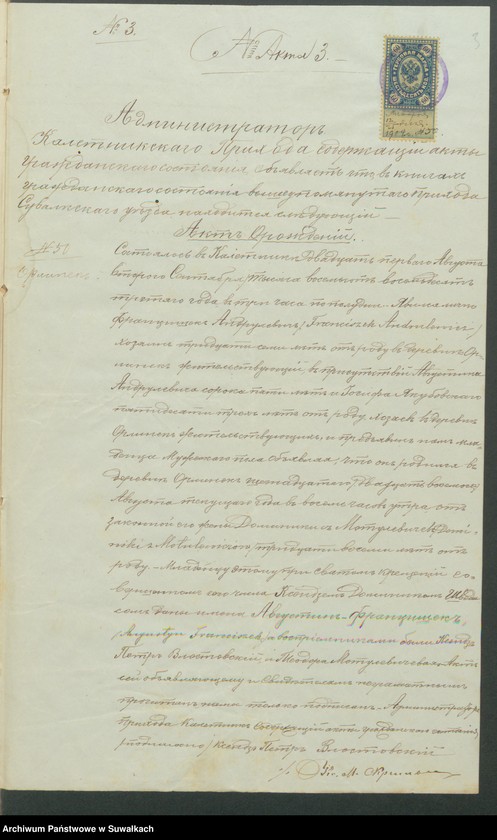 № 3.
№ Акта 3.
3
60 60
60 60
Администраторъ
Калетникскаго Прихода содержащій акты
гражданскаго состоянія объявляетъ что въ книгахъ
гражданскаго состоянія вышеупомянутаго прихода
Сувалкскаго уѣзда находится слѣдующій
Актъ о рожденіи.
Состоялось въ Калетникѣ двадцать перваго Августа
втораго Сентября тысяча восемьсотъ восемьдесятъ
третьяго года въ три часа пополудни. Явился лично
Францишекъ Андрулевичъ /Franciszek Andrulewicz/
хозяинъ тридцати семи лѣтъ отъ роду въ деревнѣ
жительствующій, въ присутствіи Августина
Андрулевича сорока пяти лѣтъ и Іосифа Якубовскаго
пятидесяти трехъ лѣтъ отъ роду хозяевъ въ деревнѣ
жительствующихъ, и предъявилъ намъ мла-
денца мужескаго пола объявляя, что онъ родился въ
деревнѣ шестнадцатаго /двадцать восьмаго/
Августа текущаго года въ восемь часовъ утра, отъ
законной его жены Доминики съ Мотулевичей /Domi-
niki z Motulewiczów/ тридцати восьми лѣтъ отъ
роду. Младенцу этому при святомъ крещеніи со-
вершенномъ сего числа Ксендзомъ Доминикомъ
дано имена Августинъ-Францишекъ,
/Augustyn Franciszek/ а воспріемниками были Ксендзъ
Петръ Властовскій, и Теодора Мотулевичова. Актъ
сей объявляющему и свидѣтелямъ неграмотнымъ
прочитанъ нами только подписанъ. Администраторъ
прихода Калетникъ содержащій акты гражданскаго состоянія
/подписано/ Ксендзъ Петръ Властовскій
Archiwum Państwowe w Suwałkach